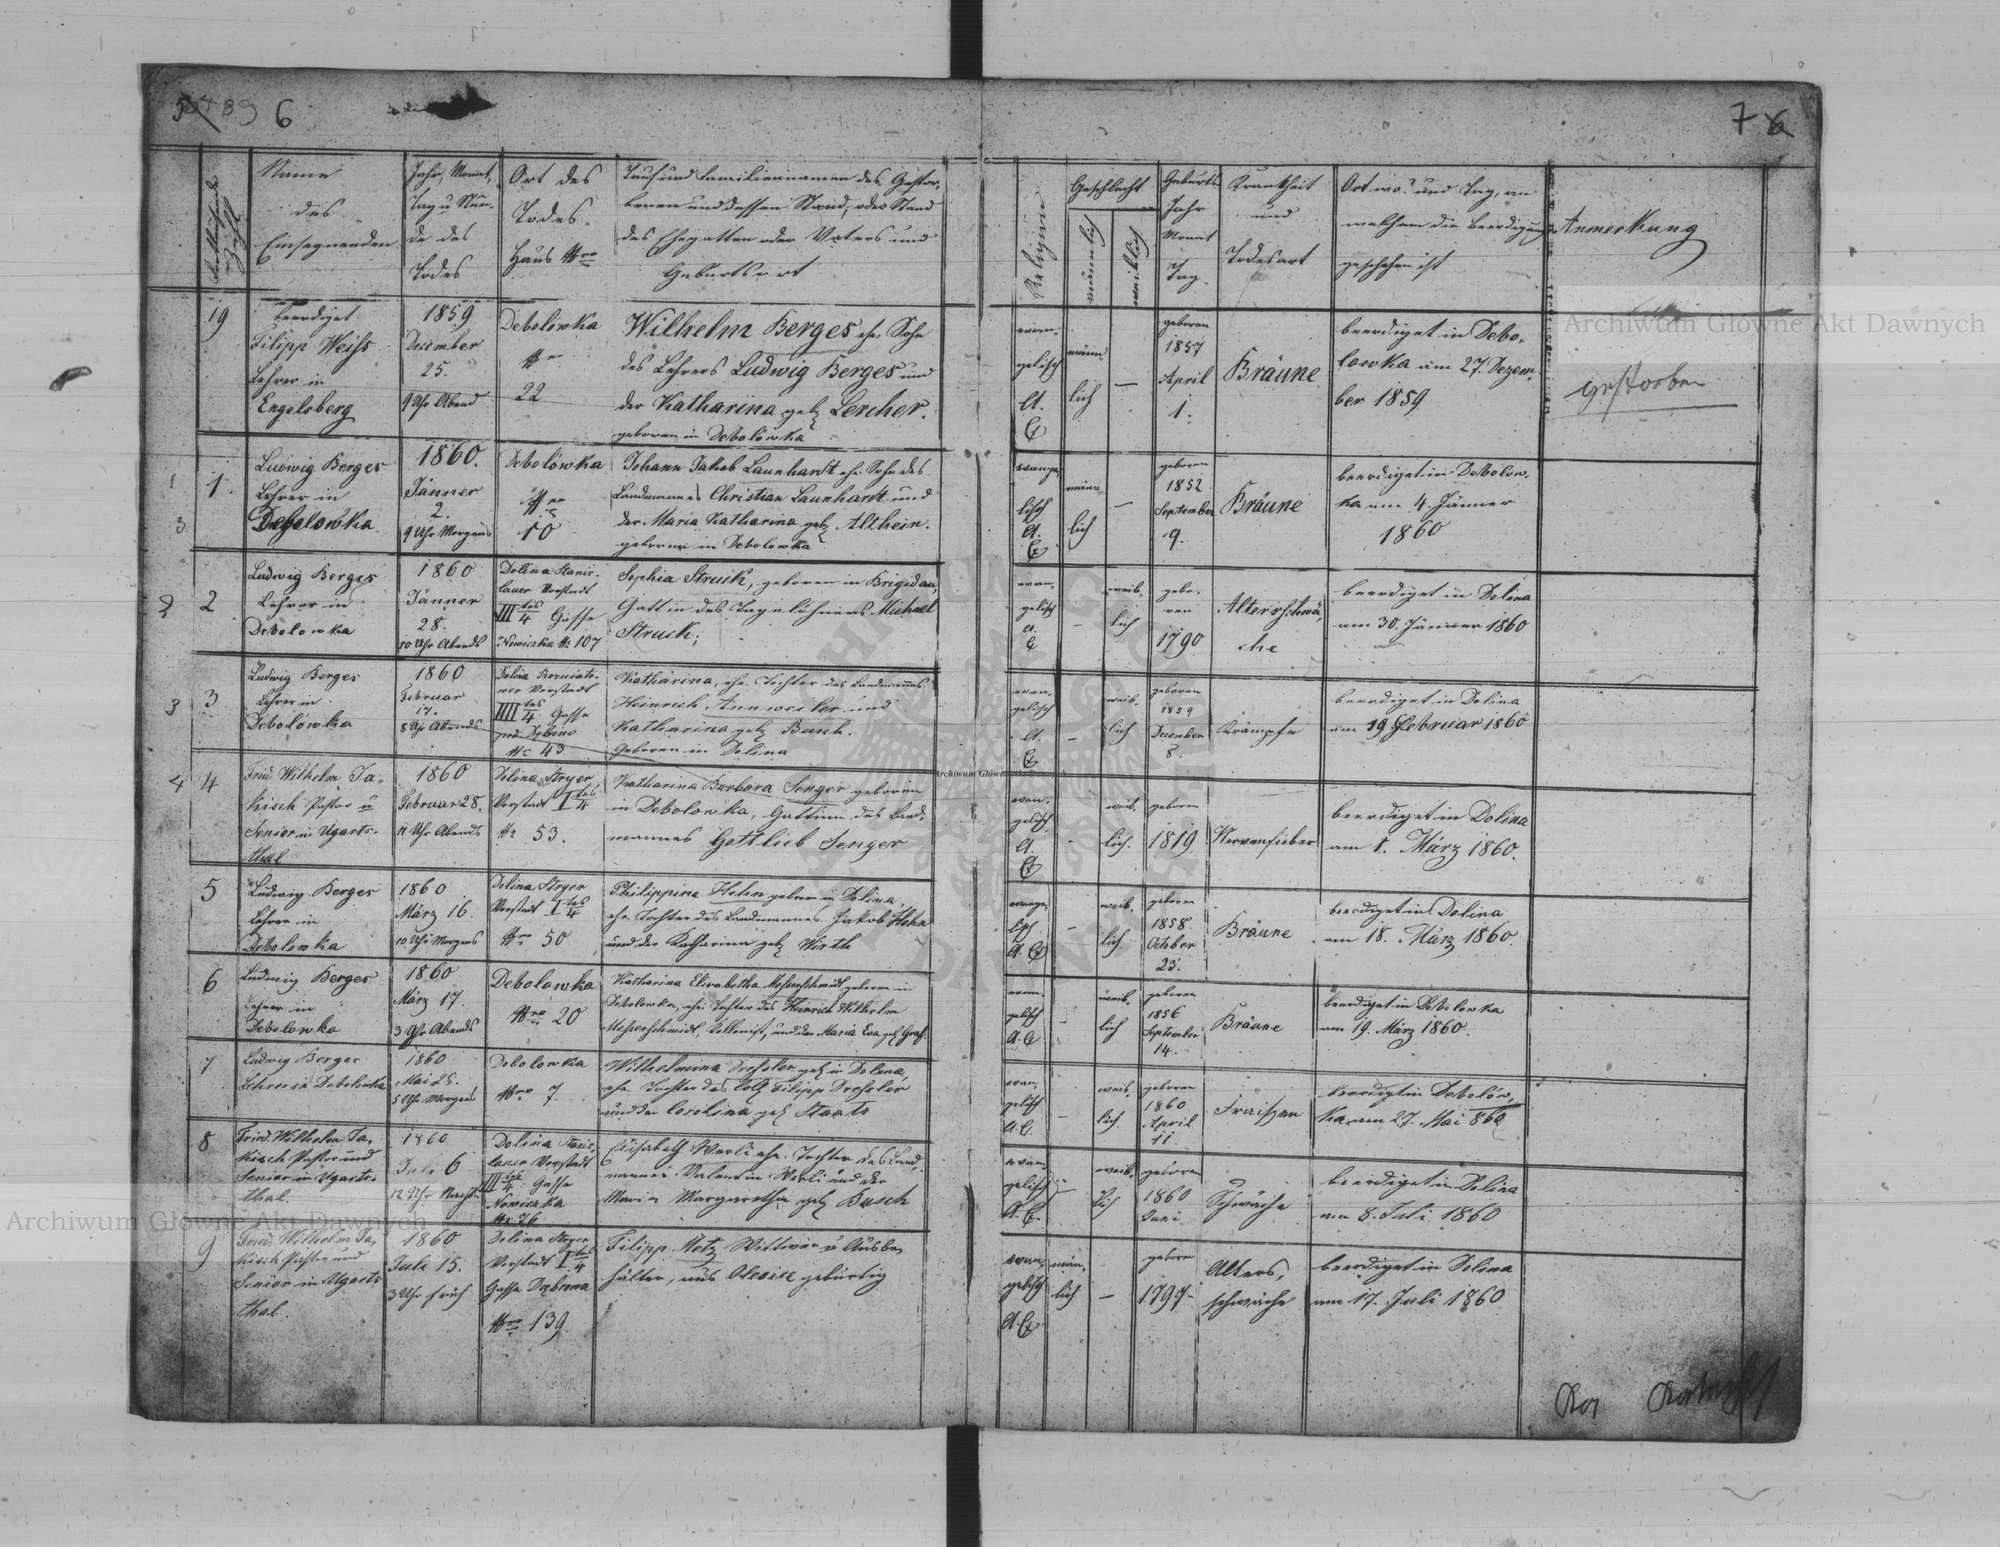 6
7
Fortlaufende Zahl
Name
des
Einsegnenden
Jahr, Monat,
Tag u. Stun-
de des
Todes
Ort des
Todes.
Haus Nro
Tauf und Familiennamen des Gestor-
benen und dessen Stand, oder Stand
des Ehegatten oder Vaters und
Geburtsort
Religion
Geschlecht
männlich
weiblich
Geburts
Jahr
Monat
Tag.
Krankheit
und
Todesart
Ort wo? und Tag, an
welchem die Beerdigung
geschehen ist
Anmerkung
19
beerdiget
Filipp Weiss
Lehrer in
Engelsberg
1859
December
25.
9 Uhr Abend
Debolówka
Nro
22
Wilhelm Berges ehe. Sohn
des Lehrers Ludwig Berges und
der Katharina geb. Lercher.
geboren in Debolówka
evan-
gelisch
A.
C
männ
lich
—
geboren
1857
April
1.
Bräune
beerdiget in Debo-
lowka am 27. Dezem-
ber 1859
gestorben
1.
Ludwig Berges
Lehrer in
Debolowka
1860.
Jänner
2.
9 Uhr Morgens
Debolówka
Nro
10
Johann Jakob Launhardt ehe. Sohn des
Landmannes Christian Launhardt und
der Maria Katharina geb. Althein.
geboren in Debolowka
evange-
lisch
A.
C
männ-
lich
—
geboren
1852
September
9.
Bräune
beerdiget in Debolow-
ka am 4. Jänner
1860
2
Ludwig Berges
Lehrer in
Debolowka
1860
Jänner
28.
10 Uhr Abends
Dolina Stanis-
lauer Vorstadt
III tes/4 Gasse
Nowiczka N 107
Sophia Struik, geboren in Brigidau,
Gattin des Tagelöhners Michael
Struik;
evan-
gelisch
A.
C
—
weib-
lich
gebo-
ren
1790
Altersschwä-
che
beerdiget in Dolina
am 30. Jänner 1860
3
Ludwig Berges
Lehrer in
Debolówka
1860
Februar
17.
8 Uhr Abends
Vorstadt
IIII tes/4 Gasse
N 43
Katharina, ehe. Tochter des Landmannes
Heinrich Annweiler und
Katharina geb. Busch.
Geboren in Dolina
evan-
gelisch
A.
C
—
weib-
lich
geboren
1859
December
8.
Krämpfe
beerdiget in Dolina
am 19 Februar 1860
4
Fried. Wilhelm Ja-
kisch Pastor u
Senior in Ugarts-
thal
1860
Februar 28.
11 Uhr Abends
Dolina Stryer
Vorstadt I tes/4
Nr 53.
Katharina Barbara Senger geboren
in Debolowka, Gattinn des Land-
mannes Gottlieb Senger
evan-
gelisch
A.
C
-
weib-
lich.
geboren
1819
Nervenfieber
beerdiget in Dolina
am 1. März 1860.
5
Ludwig Berges
Lehrer in
Debolowka
1860
März 16.
10 Uhr Morgens
Dolina Stryer
Vorstadt I tes/4
Nro 50
Philippine Hehn geboren in Dolina,
ehe. Tochter des Landmannes Jakob Hehn
und der Katharina geb. Wirth
evange-
lisch
A. C
—
weib-
lich
geboren
1858.
October
23.
Bräune
beerdiget in Dolina
am 18. März 1860.
6
Ludwig Berges
Lehrer in
Debolowka
1860
März 17.
3 Uhr Abends
Debolówka
Nro 20
Katharina Elisabetha Messerschmidt, geboren in
Debolowka, ehe. Tochter des Heinrich Wilhelm
Messerschmidt, Kolonist, und der Maria Eva geb. Graf.
evan-
gelisch
A. C
—
weib-
lich
geboren
1856
September
14.
Bräune
beerdiget in Debolowka
am 19. März 1860.
7
Ludwig Berges
Lehrer in Debolowka
1860
Mai 25.
5 Uhr Morgens
Debolowka
Nro 7.
Wilhelmina Dressler geb. in Dolina,
ehe. Tochter des Filipp Dressler
und der Carolina geb. Staats
evan-
gelisch
A. C.
weib-
lich.
geboren
1860
April
11.
Fraisen
beerdigt in Debolów-
ka am 27. Mai 860
8
Fried. Wilhelm Ja-
kisch Pastor und
Senior in Ugarts-
thal.
1860
Juli 6
12 Uhr Nachts
Dolina Stanis-
lauer Vorstadt
III tes/4 Gasse
Nowiczka
Nr 26
Elisabeth Werli ehe. Tochter des Land-
mannes Valentin Werli und der
Maria Margaretha geb. Busch
evan-
gelisch
A. C.
—
weib-
lich
geboren
1860
Juni
Schwäche
beerdiget in Dolina
am 8. Juli 1860
9
Fried. Wilhelm Ja-
kisch Pastor und
Senior in Ugarts
thal.
1860
Juli 15.
3 Uhr früh
Dolina Stryer
Vorstadt I tes/4
Gasse Dąbrowa
Nro 139.
Filipp Metz Wittwer u Ausbe-
hälter, aus gebürtig
evan-
gelisch
A. C.
män-
lich
—
geboren
1797
Alters-
schwäche
beerdiget in Dolina
am 17. Juli 1860
Archiwum Główne Akt Dawnych
Archiwum Główne Akt Dawnych
Archiwum Główne Akt Dawnych